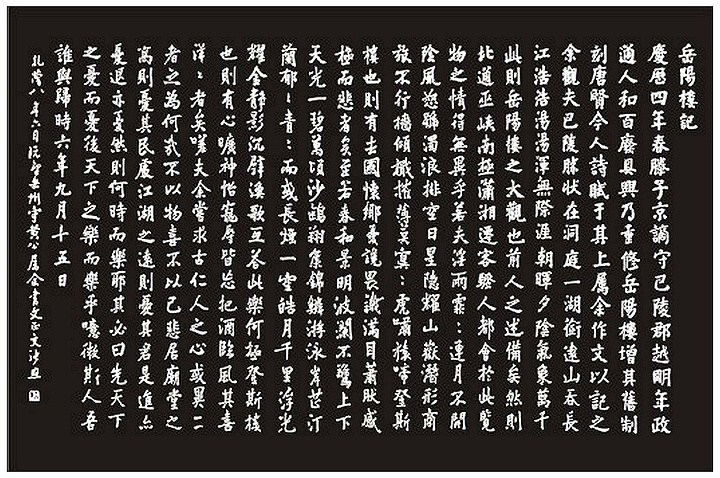 岳陽樓記
慶曆四年春滕子京謫守巴陵郡越明年政
通人和百廢具興乃重修岳陽樓增其舊制
刻唐賢今人詩賦于其上屬余作文以記之
余觀夫巴陵勝狀在洞庭一湖銜遠山吞長
江浩浩湯湯渾無際涯朝暉夕陰氣象萬千
此則岳陽樓之大觀也前人之述備矣然則
北通巫峽南極瀟湘遷客騷人都會於此覽
物之情得無異乎若夫淫雨霏:連月不開
陰風怒號濁浪排空日星隱耀山嶽潛形商
旅不行檣傾檝摧薄莫冥:虎嘯猿啼登斯
樓也則有去國懷鄉憂讒畏譏滿目蕭然感
極而悲者矣至若春和景明波瀾不驚上下
天光一碧萬頃沙鷗翔集錦鱗游泳岸芷汀
蘭郁:青:而或長煙一空皓月千里浮光
耀金靜影沉璧漁歌互答此樂何極登斯樓
也則有心曠神怡寵辱皆忘把酒臨風其喜
洋:者矣嗟夫余嘗求古仁人之心或異二
者之為何哉不以物喜不以己悲居廟堂之
高則憂其民處江湖之遠則憂其君是進亦
憂退亦憂然則何時而樂耶其必曰先天下
之憂而憂後天下之樂而樂乎噫微斯人吾
誰與歸時六年九月十五日
乾隆八年六 岳州 黃公屬余書